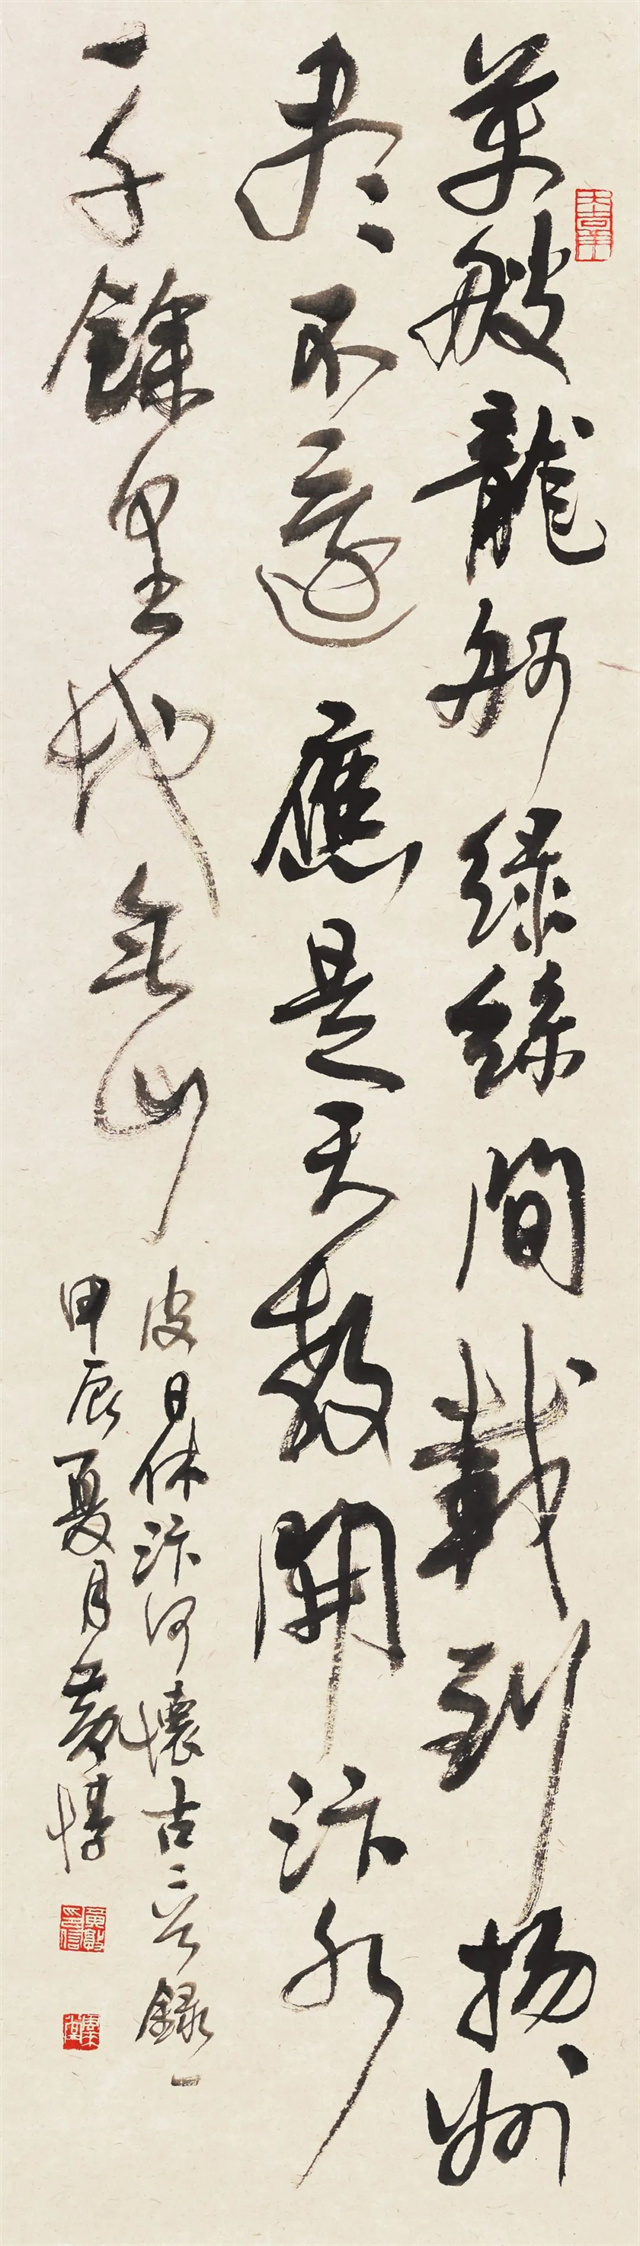 萬艘龍舸綠絲間載到揚州
盡不還應是天教開汴水
一千餘里地無山
皮日休汴河懷古二首錄一
甲辰夏月黃惇